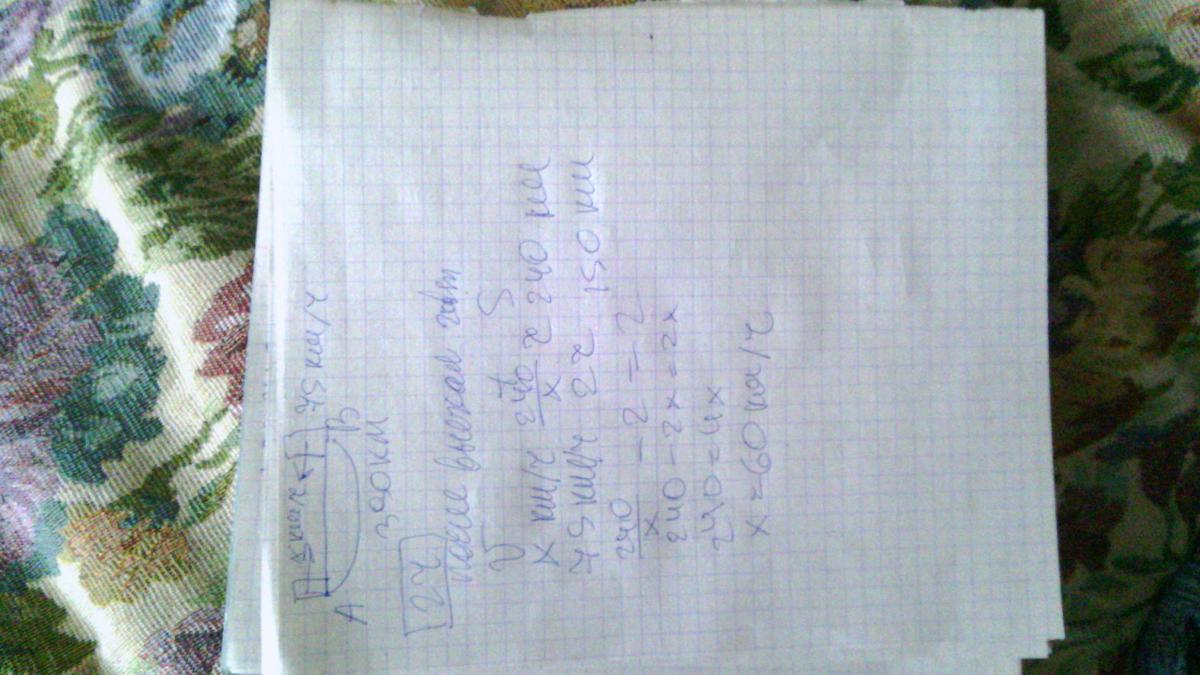 x км/ч 75 км/ч
A B
390 км
2 ч
после выехал авт
V t S
x км/ч 240/x ч 240 км
75 км/ч 2 ч 150 км
240/x - 2 = 2
240 - 2x = 2x
240 = 4x
x = 60 км/ч